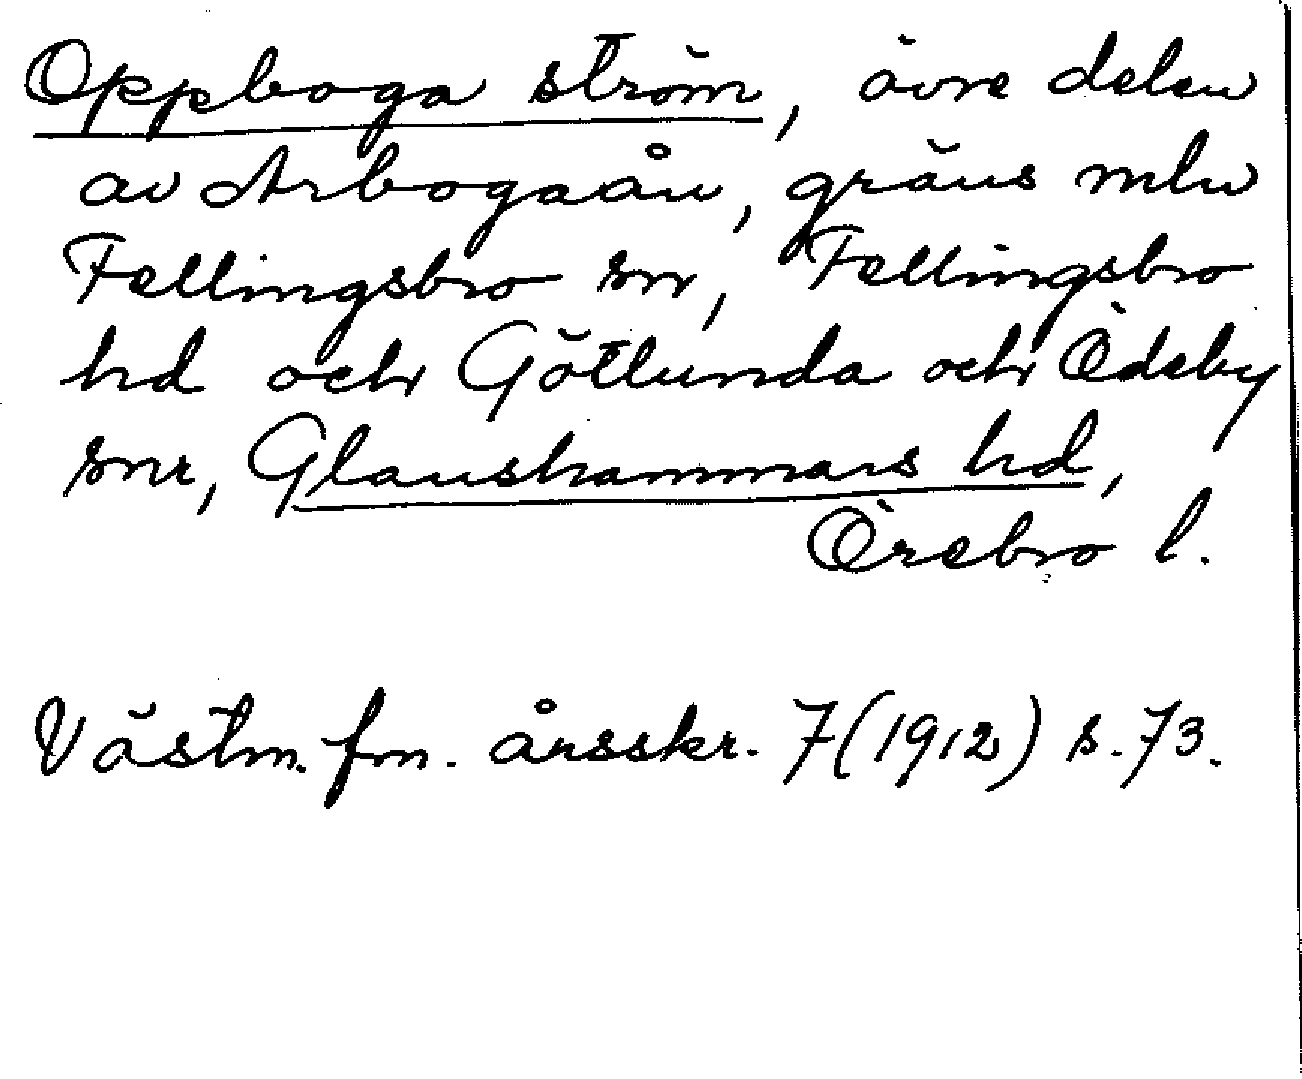 Oppboga ström, övre delen
av Arbogaån, gräns mln
Fellingsbro sn, Fellingsbro
hd och Götlunda och Ödeby
snr, Glanshammars hd,
Örebro l.
Västm. fm. årsskr. 7(1912) s. 73.